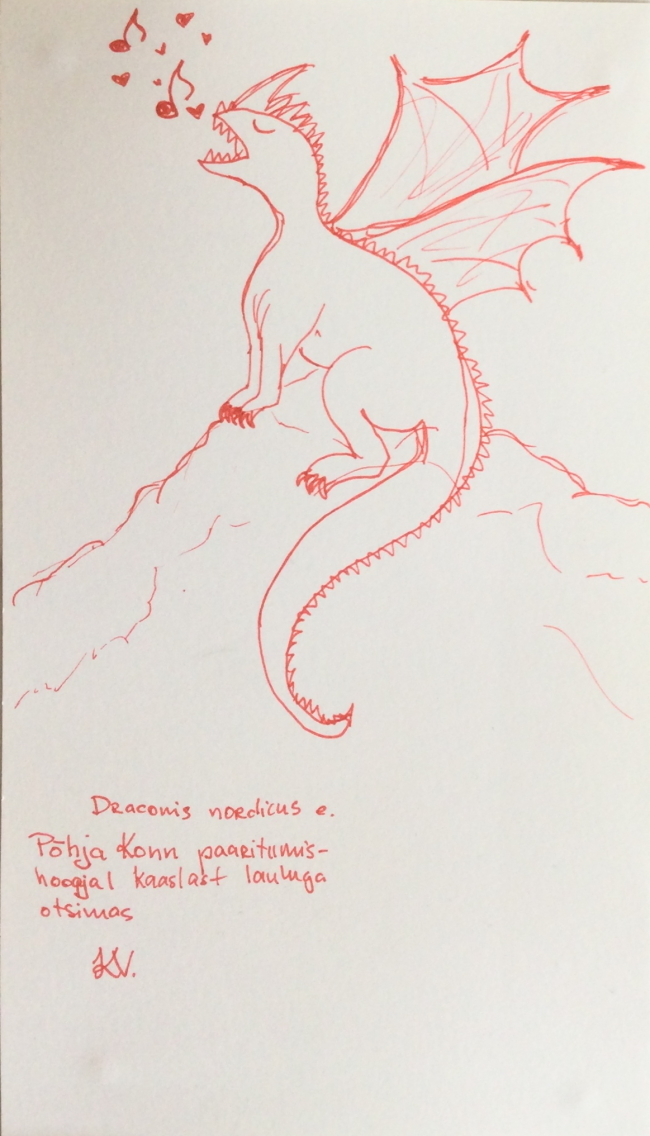 Draconis nordicus e.
Põhja Konn paaritumis-
hooajal kaaslast lauluga
otsimas
KV.